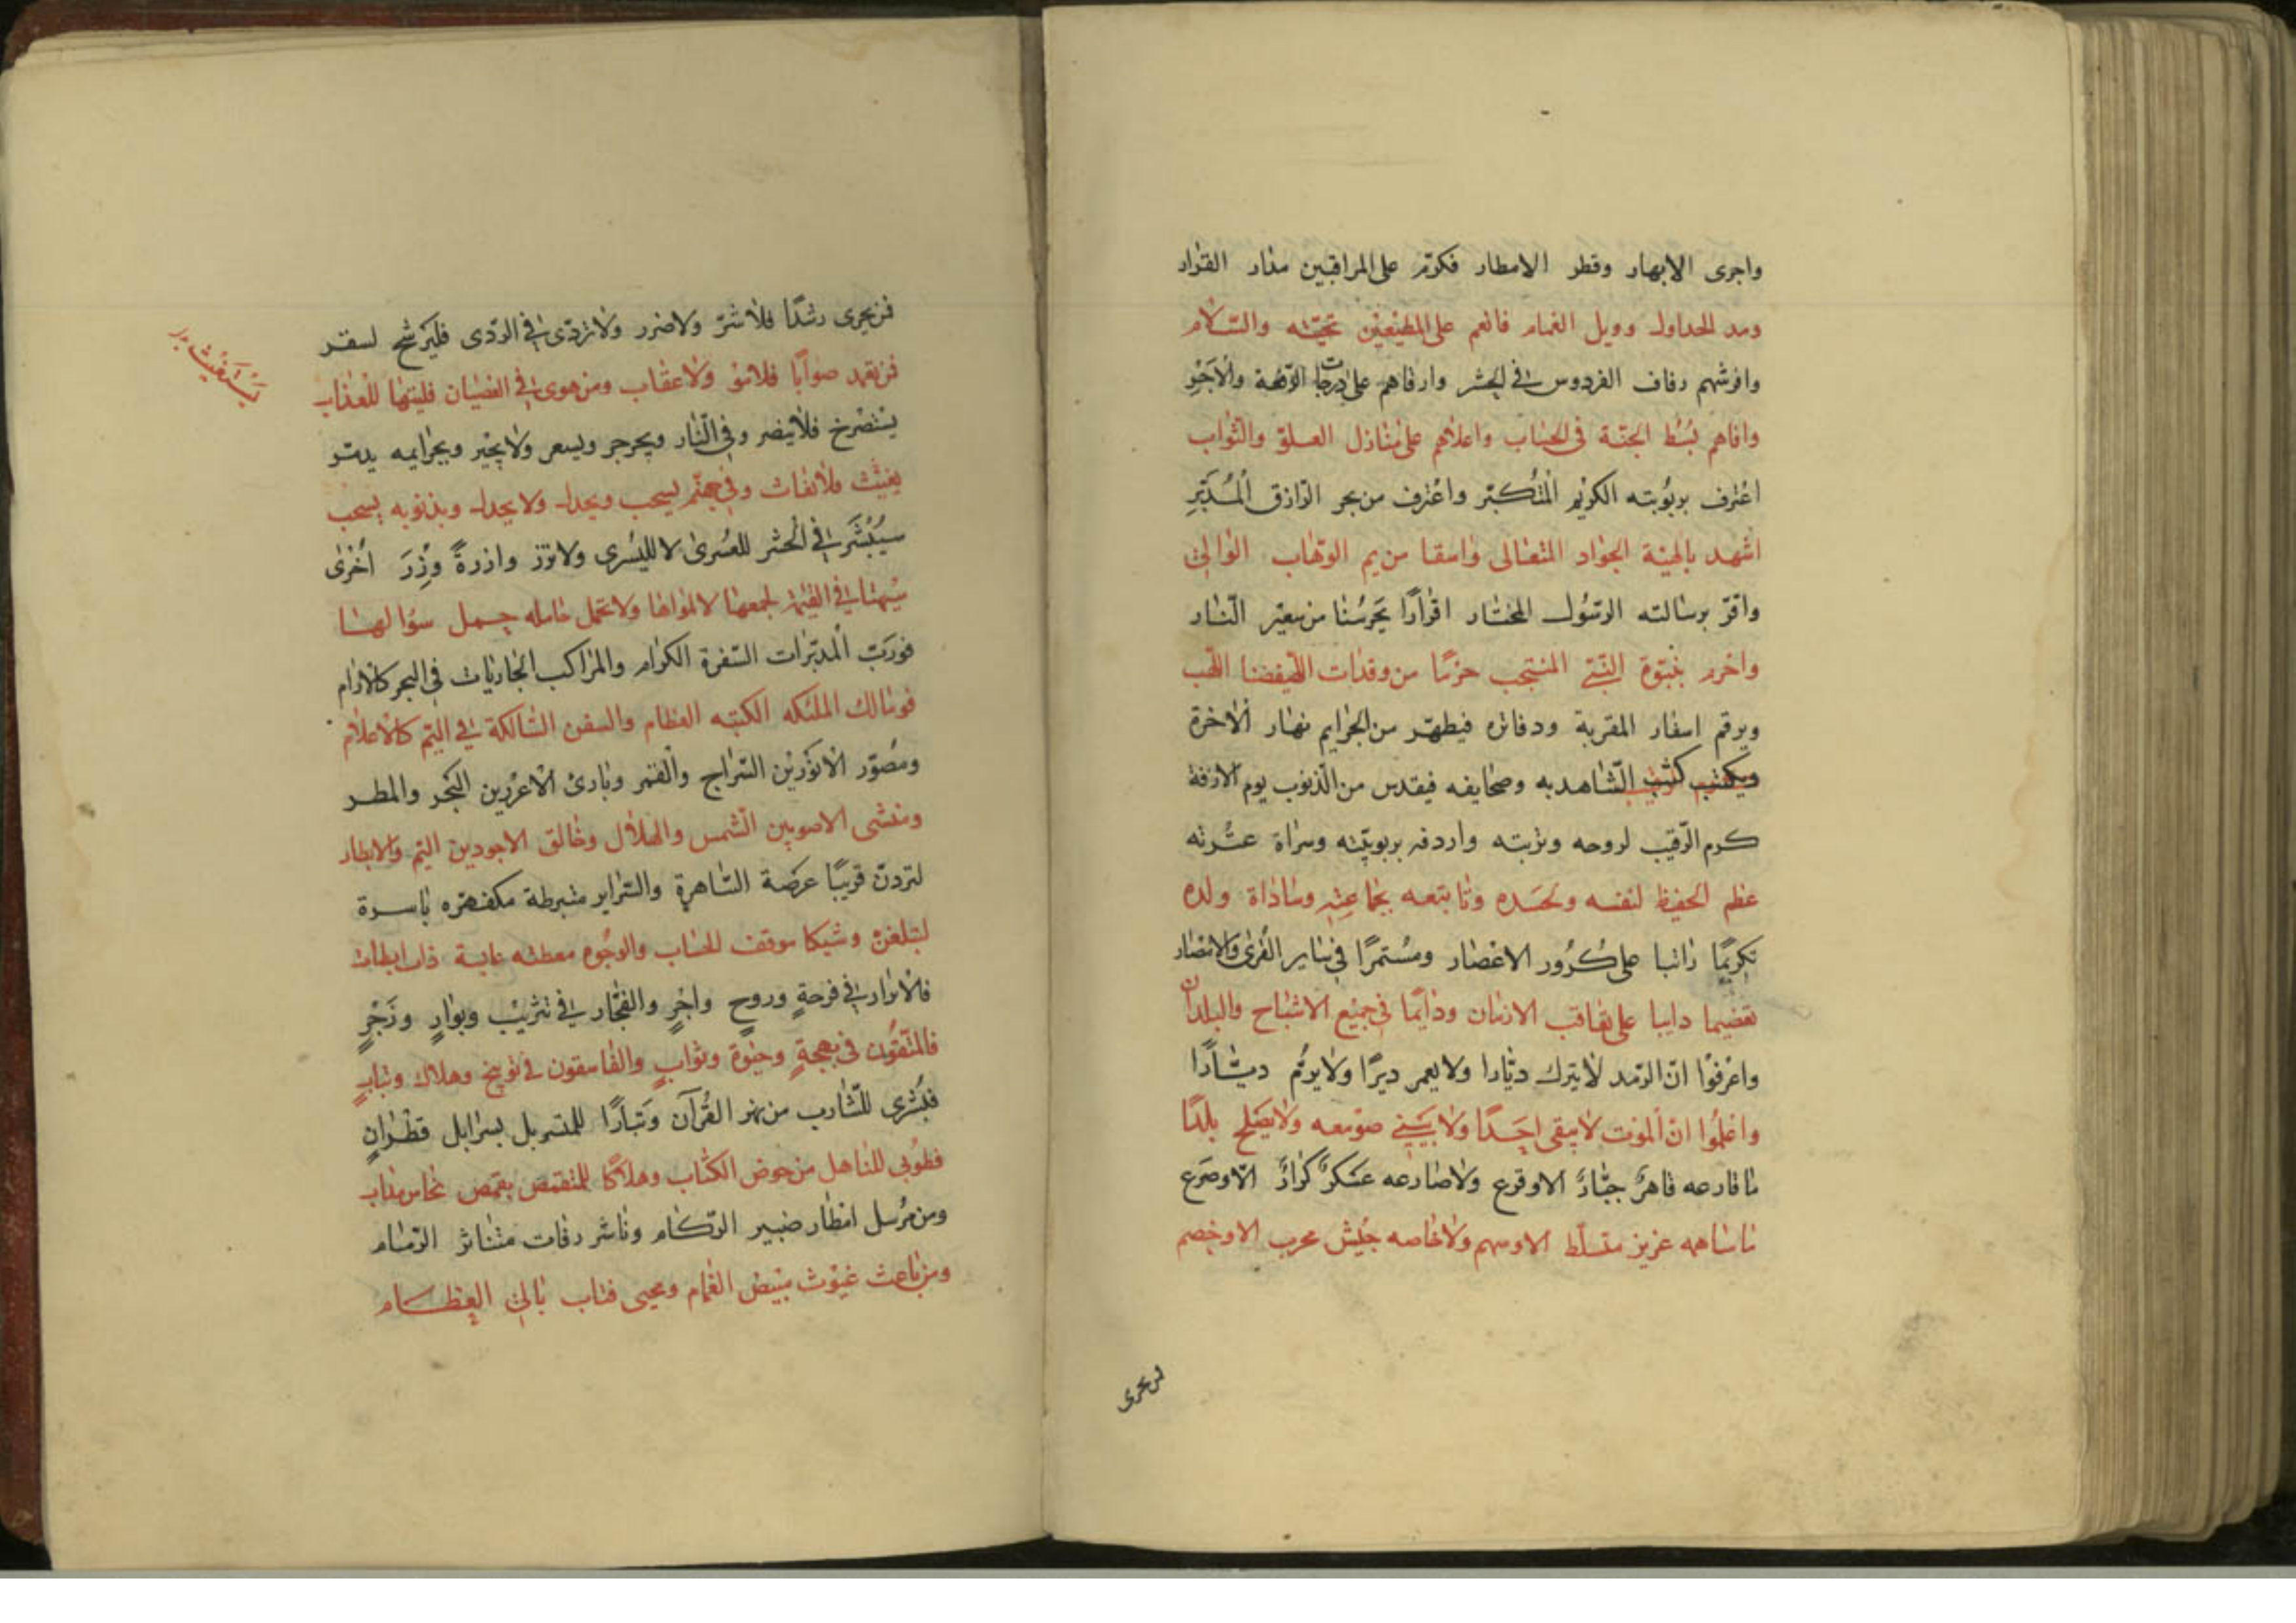 واجرى الابهار وقطر الامطار فكرّم على المراقبين مدار القرار
ومد الجداول وويل الغمام فانعم على المطيعين تحيّته والسّلام
وافرشهم رفاف الفردوس في الحشر وارقاهم على درجات الرّفعة والاَجْرِ
وافاهم بُسُط الجنّة في الحساب واعلاهم على منازل العلوّ والثواب
اعْترف بربُوبته الكريم المتُكبّر واعْترف من بحر الرّازق المُدَبّرِ
اشهد بالهيّة الجواد المتعالى واسقا من يم الوهّاب الوٰالي
واقرّ برسالته الرسُول المختار اقرٰارًا يَحرسُنا من سعير النّار
واحرر بنبوّة النّبيّ المنتجب حرزًا من وقدات اللهب
ويرقم اسفار المقربة ودفاتره فيطهّر من الجرٰايم نهار الاٰخرة
ويكتب كتب الشّاهديه وصحايفه فيقدس من الذنوب يوم الازفة
كرم الرّقيب لروحه وتربته واردفه بربوبيّته وسراة عشرته
عظم الحفيظ لنفسه ولجَسَده وتابتعه بجماعته وساداة ولده
تكريمًا راتبا على كُرُور الاعْصار ومُستمرًا في ساير القُرى والامصار
تعضيما دايبا على تعاقب الازمان ودٰايمًا في جميع الاشباح والبلدان
واعْرفوْا انّ الرّمد لايترك ديّارا ولايعمر ديرًا ولايرمُّ ديّارًا
واعْلمُوا انّ الموت لايبقى احَدًا ولايَبني صومعه ولايصلح بلدًا
ما قارعه قاهرٌ جبّارٌ الاوقرع ولاصارعه عَسكرٌ كرّارٌ الاّوصَرع
ما ساهمه عزيز متسلّط الاوسهم ولاخاصمه جيش محرب الاوخصم
من يجرى
فمن يجرى رشدًا فلاشرّ ولاضرر ولاتردّى في الرّدى فليَرشّح لسقر
فمن يقصد صوابًا فلا ولاعقاب ومن هوى في العصيان فليتهيّا للعذاب
يسْتصْرخ فلاينصر وفي النّار ويجرجر ويسعر ولايجير وبجرايمه
يغيث فلايغاث وفي جهنّم يسحب ويجدل ولايجدل وبذنوبه يسحب
سيُبُشَّر في الحشر للعسرى لا لليُسرى ولاتزر وازرةٌ وِزرَ اُخْرٰى
سُيهنا في القيمة لجمعها لا ولاتحمل حامله حمل سؤالها
فوربّ المُدبّرات السّفرة الكرام والمراكب الجاريات في البحر كالارام
فومالك الملئكه الكتبه العظام والسفن السّالكة في اليّم كالاعلام
ومُصوّر الانورين السّراج والقمر وبارئ الاعْززين البحر والمطر
ومنشى الاصويين الشّمس والهلال وخالق الاجودين اليّم والابطار
لتردنّ قريبًا عرَصة السّاهرة والسّراير متبرطة مكفهرّه باسرة
لتبلغنّ وشيكا موقف الحساب والوجُوه معطشه عابسة ذات ابطات
فالابرار في فرحةٍ وروحٍ واجْرٍ والفجّار في تثريْبٍ وبوارٍ وزَجْرٍ
فالمتّقُون في بهجةٍ وحيوة وثوابٍ والفاسقون في توبيخ وهلاك وتبابٍ
فبُشرى للشّارب من نهر القُرآن وتَبارًا للمتسربل بسرابل قطْرانٍ
فطوُبى للناهل من حوض الكتاب وهلاكًا للمتقمّص بقمص نحاس مذاب
ومن مُرسل امْطار ضبير الرّكام وناشر رفات متناثر الرّمام
ومن باعث غيوث مبيض الغمام ومحيى فتاب بالي العِظام
يَسْتَغيْثُ بدل